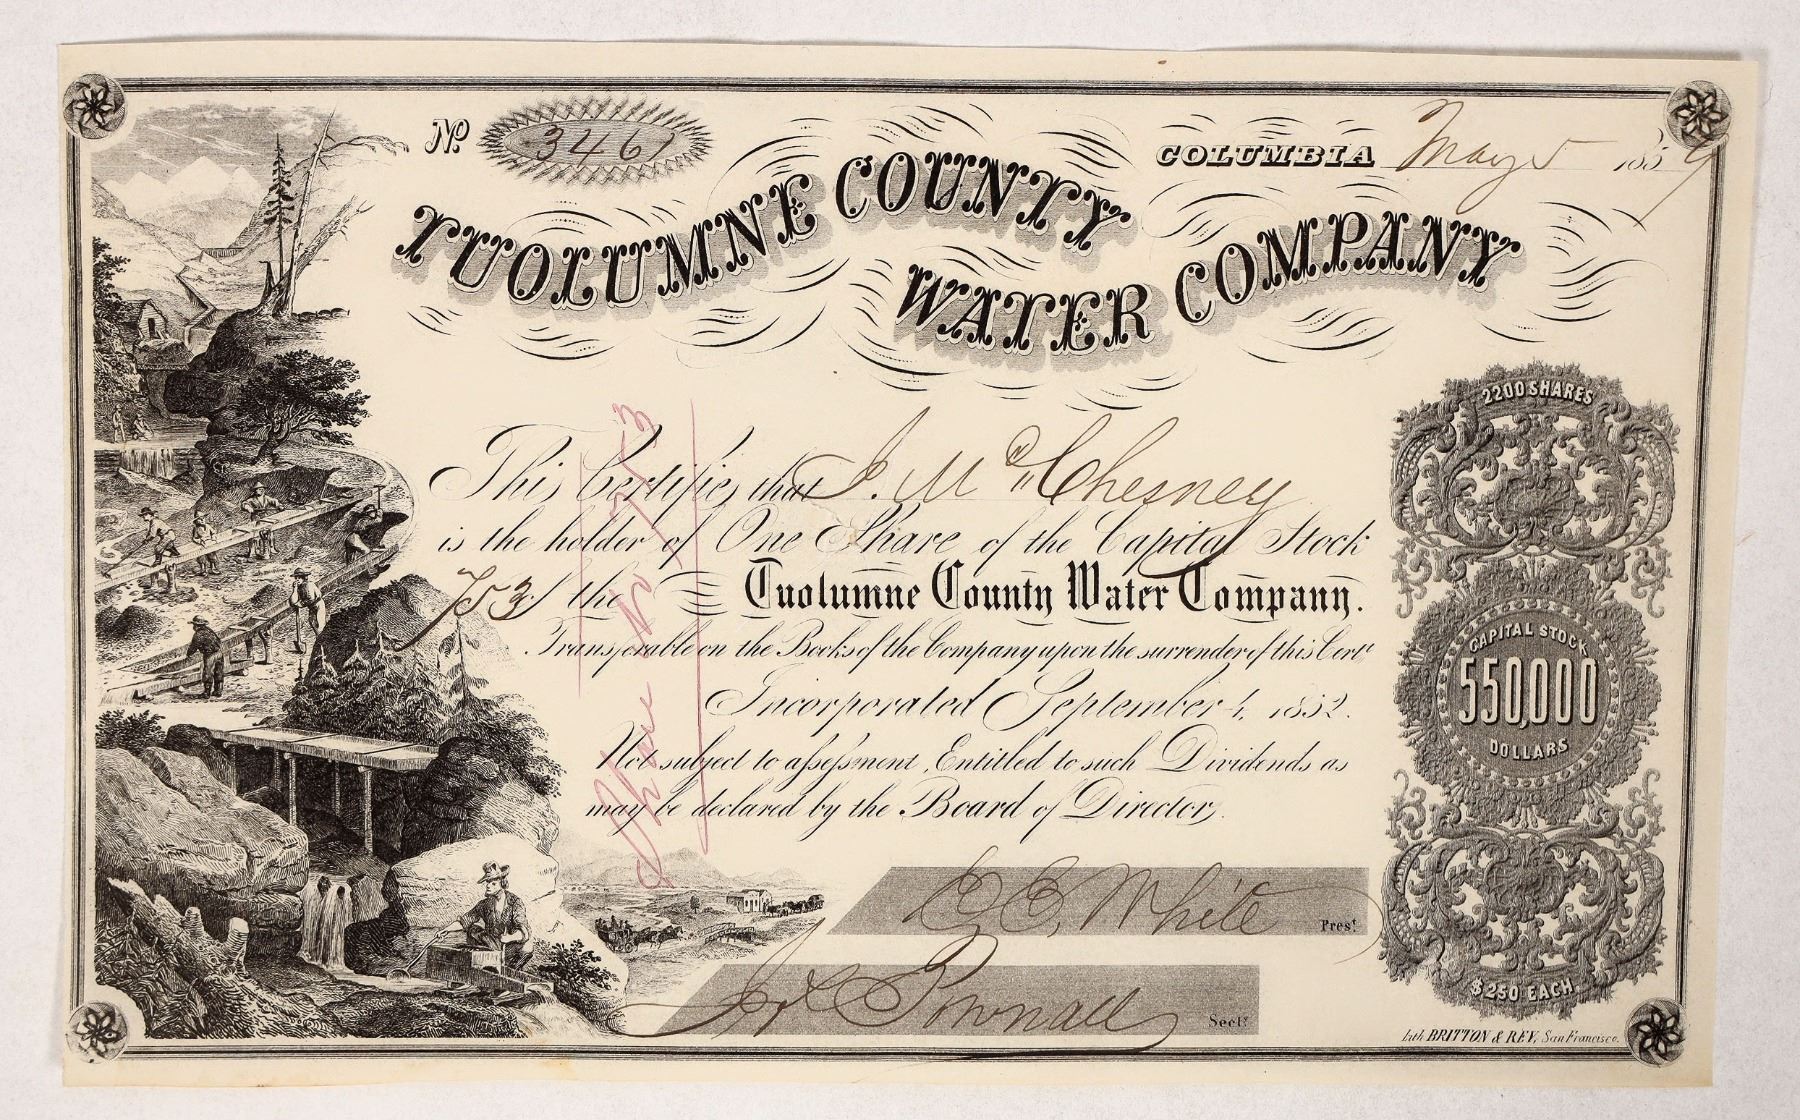 No. 3461
COLUMBIA May 5 1859
TUOLUMNE COUNTY
WATER COMPANY
2200 SHARES
This Certifies that J. McChesney
is the holder of One Share of the Capital Stock
753 of the Tuolumne County Water Company.
Transferable on the Books of the Company upon the surrender of this Cert.
Incorporated September 4, 1852.
Not subject to assessment, Entitled to such Dividends as
may be declared by the Board of Directors.
Share No 753
CAPITAL STOCK
550,000
DOLLARS
White Prest.
Pownall Secty.
$250 EACH
Lith. BRITTON & REY, San Francisco.